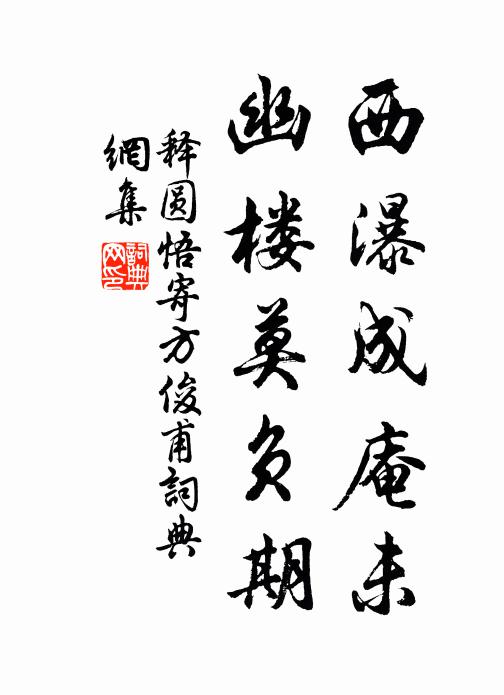 西瀑成庵未
幽楼莫负期
释圆悟寄方俊甫詞典
網集
詞典
网印